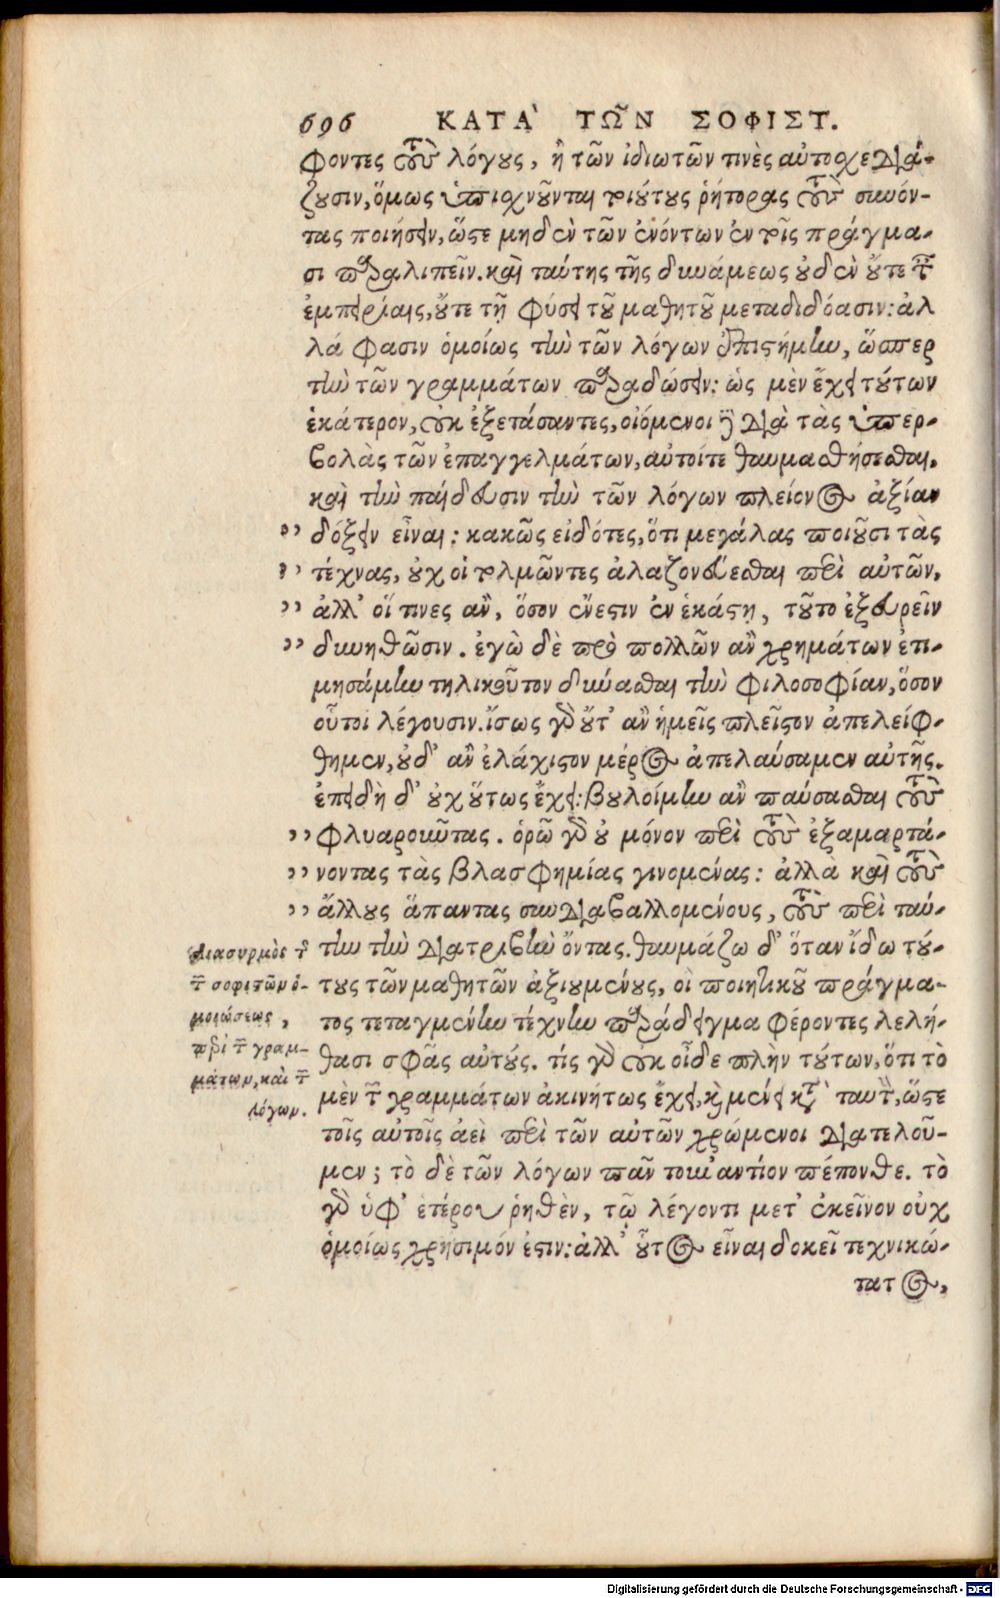 696 ΚΑΤᾺ ΤΩ͂Ν ΣΟΦΙΣΤ.
φοντες τοὺς λόγους, ἢ τῶν ἰδιωτῶν τινὲς αὐτοσχεδιά-
ζουσιν, ὅμως ὑπισχνοῦνται τοιούτους ῥήτορας τοὺς συνόν-
τας ποιήσειν, ὥστε μηδὲν τῶν ἐνόντων ἐν τοῖς πράγμα-
σι παραλιπεῖν. καὶ ταύτης τῆς δυνάμεως οὐδὲν οὔτε τῆς
ἐμπειρίαις, οὔτε τῇ φύσει τοῦ μαθητοῦ μεταδιδόασιν: ἀλ
λά φασιν ὁμοίως τὴν τῶν λόγων ἐπιστήμην, ὥσπερ
τὴν τῶν γραμμάτων παραδώσειν: ὡς μὲν ἔχει τούτων
ἑκάτερον, οὐκ ἐξετάσαντες, οἰόμενοι δὲ διὰ τὰς ὑπερ-
βολὰς τῶν ἐπαγγελμάτων, αὐτοί τε θαυμασθήσεσθαι,
καὶ τὴν παίδευσιν τὴν τῶν λόγων πλείονος ἀξίαν
,, δόξειν εἶναι: κακῶς εἰδότες, ὅτι μεγάλας ποιοῦσι τὰς
,, τέχνας, οὐχ οἱ τολμῶντες ἀλαζονεύεσθαι περὶ αὐτῶν,
,, ἀλλ’ οἵ τινες ἂν, ὅσον ἔνεστιν ἐν ἑκάστῃ, τοῦτο ἐξευρεῖν
,, δυνηθῶσιν. ἐγὼ δὲ πρὸ πολλῶν ἂν χρημάτων ἐτι-
μησάμην τηλικοῦτον δύνασθαι τὴν φιλοσοφίαν, ὅσον
οὗτοι λέγουσιν. ἴσως γὰρ οὔτ’ ἂν ἡμεῖς πλεῖστον ἀπελείφ-
θημεν, οὐδ’ ἂν ἐλάχιστον μέρος ἀπελαύσαμεν αὐτῆς.
ἐπειδὴ δ’ οὐχ οὕτως ἔχει: βουλοίμην ἂν παύσασθαι τοὺς
,, φλυαροῦντας. ὁρῶ γὰρ οὐ μόνον περὶ τοὺς ἐξαμαρτά-
,, νοντας τὰς βλασφημίας γινομένας: ἀλλὰ καὶ τοὺς
,, ἄλλους ἅπαντας συνδιαβαλλομένους, τοὺς περὶ ταύ-
την τὴν διατριβὴν ὄντας. θαυμάζω δ’ ὅταν ἴδω τού-
τους τῶν μαθητῶν ἀξιουμένους, οἳ ποιητικοῦ πράγμα-
τος τεταγμένην τέχνην παράδειγμα φέροντες λελή-
θασι σφᾶς αὐτούς. τίς γὰρ οὐκ οἶδε πλὴν τούτων, ὅτι τὸ
μὲν τῶν γραμμάτων ἀκινήτως ἔχει, καὶ μένει κατὰ ταυτὸν, ὥστε
τοῖς αὐτοῖς ἀεὶ περὶ τῶν αὐτῶν χρώμενοι διατελοῦ-
μεν; τὸ δὲ τῶν λόγων πᾶν τοὐναντίον πέπονθε. τὸ
γὰρ ὑφ’ ἑτέρου ῥηθὲν, τῷ λέγοντι μετ’ ἐκεῖνον οὐχ
ὁμοίως χρήσιμόν ἐστιν: ἀλλ’ οὗτος εἶναι δοκεῖ τεχνικώ-
τατος,
διασυρμὸς τῆς
τῶν σοφιστῶν ὁ-
μοιώσεως,
περὶ τῶν γραμ-
μάτων, καὶ τῶν
λόγων.
Digitalisierung gefördert durch die Deutsche Forschungsgemeinschaft - DFG